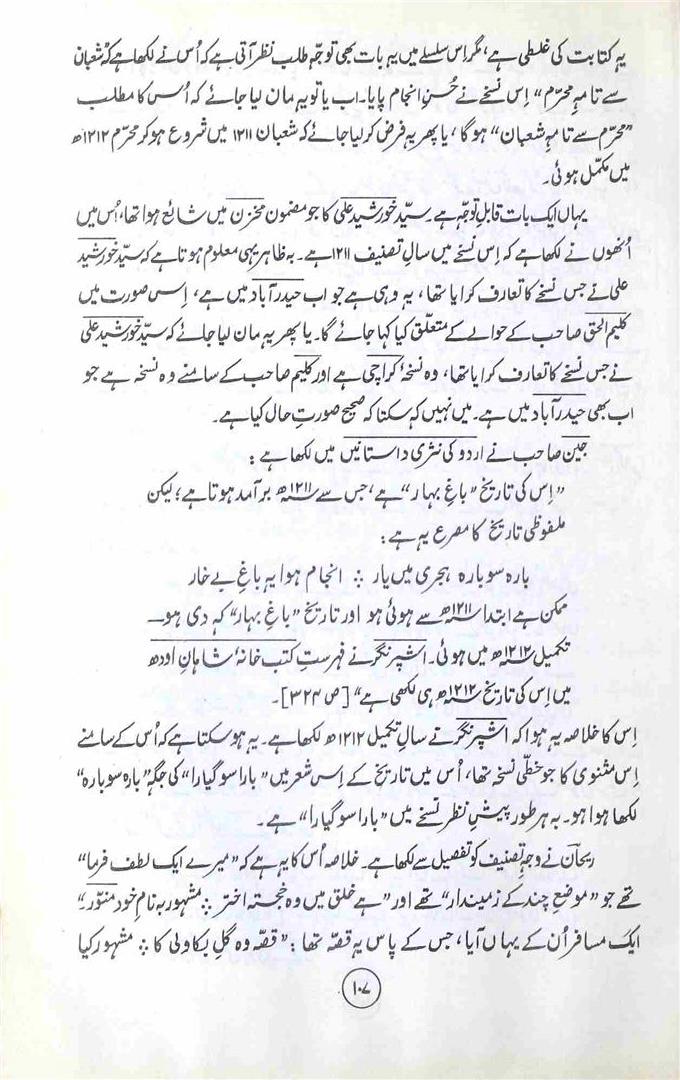 یہ کتابت کی غلطی ہے، مگر اس سلسلے میں یہ بات بھی توجّہ طلب نظر آتی ہے کہ اُس نے لکھا ہے کہ "شعبان
سے تا مہِ محرّم" اِس نسخے نے حُسنِ انجام پایا۔ اب یا تو یہ مان لیا جائے کہ اُس کا مطلب
"محرّم سے تا مہِ شعبان" ہوگا، یا پھر یہ فرض کر لیا جائے کہ شعبان ۱۲۱۱ میں شروع ہو کر محرّم ۱۲۱۲ھ
میں مکمّل ہوئی۔
یہاں ایک بات قابلِ توجّہ ہے۔ سیّد خورشید علی کا جو مضمون مخزن میں شائع ہوا تھا، اُس میں
اُنھوں نے لکھا ہے کہ اِس نسخے میں سالِ تصنیف ۱۲۱۱ ہے۔ بہ ظاہر یہی معلوم ہوتا ہے کہ سیّد خورشید
علی نے جس نسخے کا تعارف کرایا تھا، یہ وہی ہے جو اب حیدرآباد میں ہے، اِس صورت میں
کلیم الحق صاحب کے حوالے کے متعلّق کیا کہا جائے گا۔ یا پھر یہ مان لیا جائے کہ سیّد خورشید علی
نے جس نسخے کا تعارف کرایا تھا، وہ نسخۂ کراچی ہے اور کلیم صاحب کے سامنے وہ نسخہ ہے جو
اب بھی حیدرآباد میں ہے۔ میں نہیں کہہ سکتا کہ صحیح صورتِ حال کیا ہے۔
جین صاحب نے اردو کی نثری داستانیں میں لکھا ہے:
"اِس کی تاریخ "باغِ بہار" ہے، جس سے ۱۲۱۱ھ برآمد ہوتا ہے؛ لیکن
ملفوظی تاریخ کا مصرع یہ ہے:
بارہ سو بارہ ہجری میں یار ؞ انجام ہوا یہ باغِ بے خار
ممکن ہے ابتدا ۱۲۱۱ھ سے ہوئی ہو اور تاریخ "باغِ بہار" کہ دی ہو—
تکمیل ۱۲۱۲ھ میں ہوئی۔ اشپرنگر نے فہرستِ کتب خانۂ شاہانِ اودھ
میں اِس کی تاریخ ۱۲۱۲ھ ہی لکھی ہے" [ص ۳۲۴]۔
اِس کا خلاصہ یہ ہوا کہ اشپرنگر نے سالِ تکمیل ۱۲۱۲ھ لکھا ہے۔ یہ ہو سکتا ہے کہ اُس کے سامنے
اِس مثنوی کا جو خطّی نسخہ تھا، اُس میں تاریخ کے اِس شعر میں "بارا سو گیارا" کی جگہ "بارہ سو بارہ"
لکھا ہوا ہو۔ بہ ہر طور پیشِ نظر نسخے میں "بارا سو گیارا" ہے۔
ریحان نے وجہِ تصنیف کو تفصیل سے لکھا ہے۔ خلاصہ اُس کا یہ ہے کہ "میرے ایک لطف فرما"
تھے جو "موضعِ چند کے زمیندار" تھے اور "ہے خلق میں وہ خجستہ اختر ؞ مشہور بہ نامِ خود منوّر۔"
ایک مسافر اُن کے یہاں آیا، جس کے پاس یہ قصّہ تھا: "قصّہ وہ گلِ بکاولی کا ؞ مشہور کیا
۱۰۷